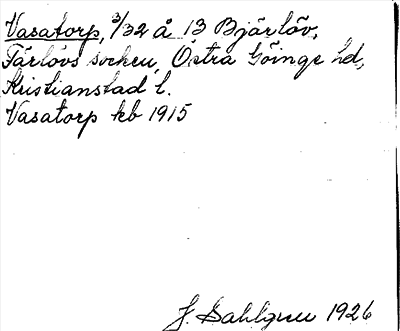 Vasatorp, 3/32 å 13 Bjärlöv,
Färlövs socken, Östra Göinge hd,
Kristianstad l.
Vasatorp kb 1915
J. Sahlgren 1926